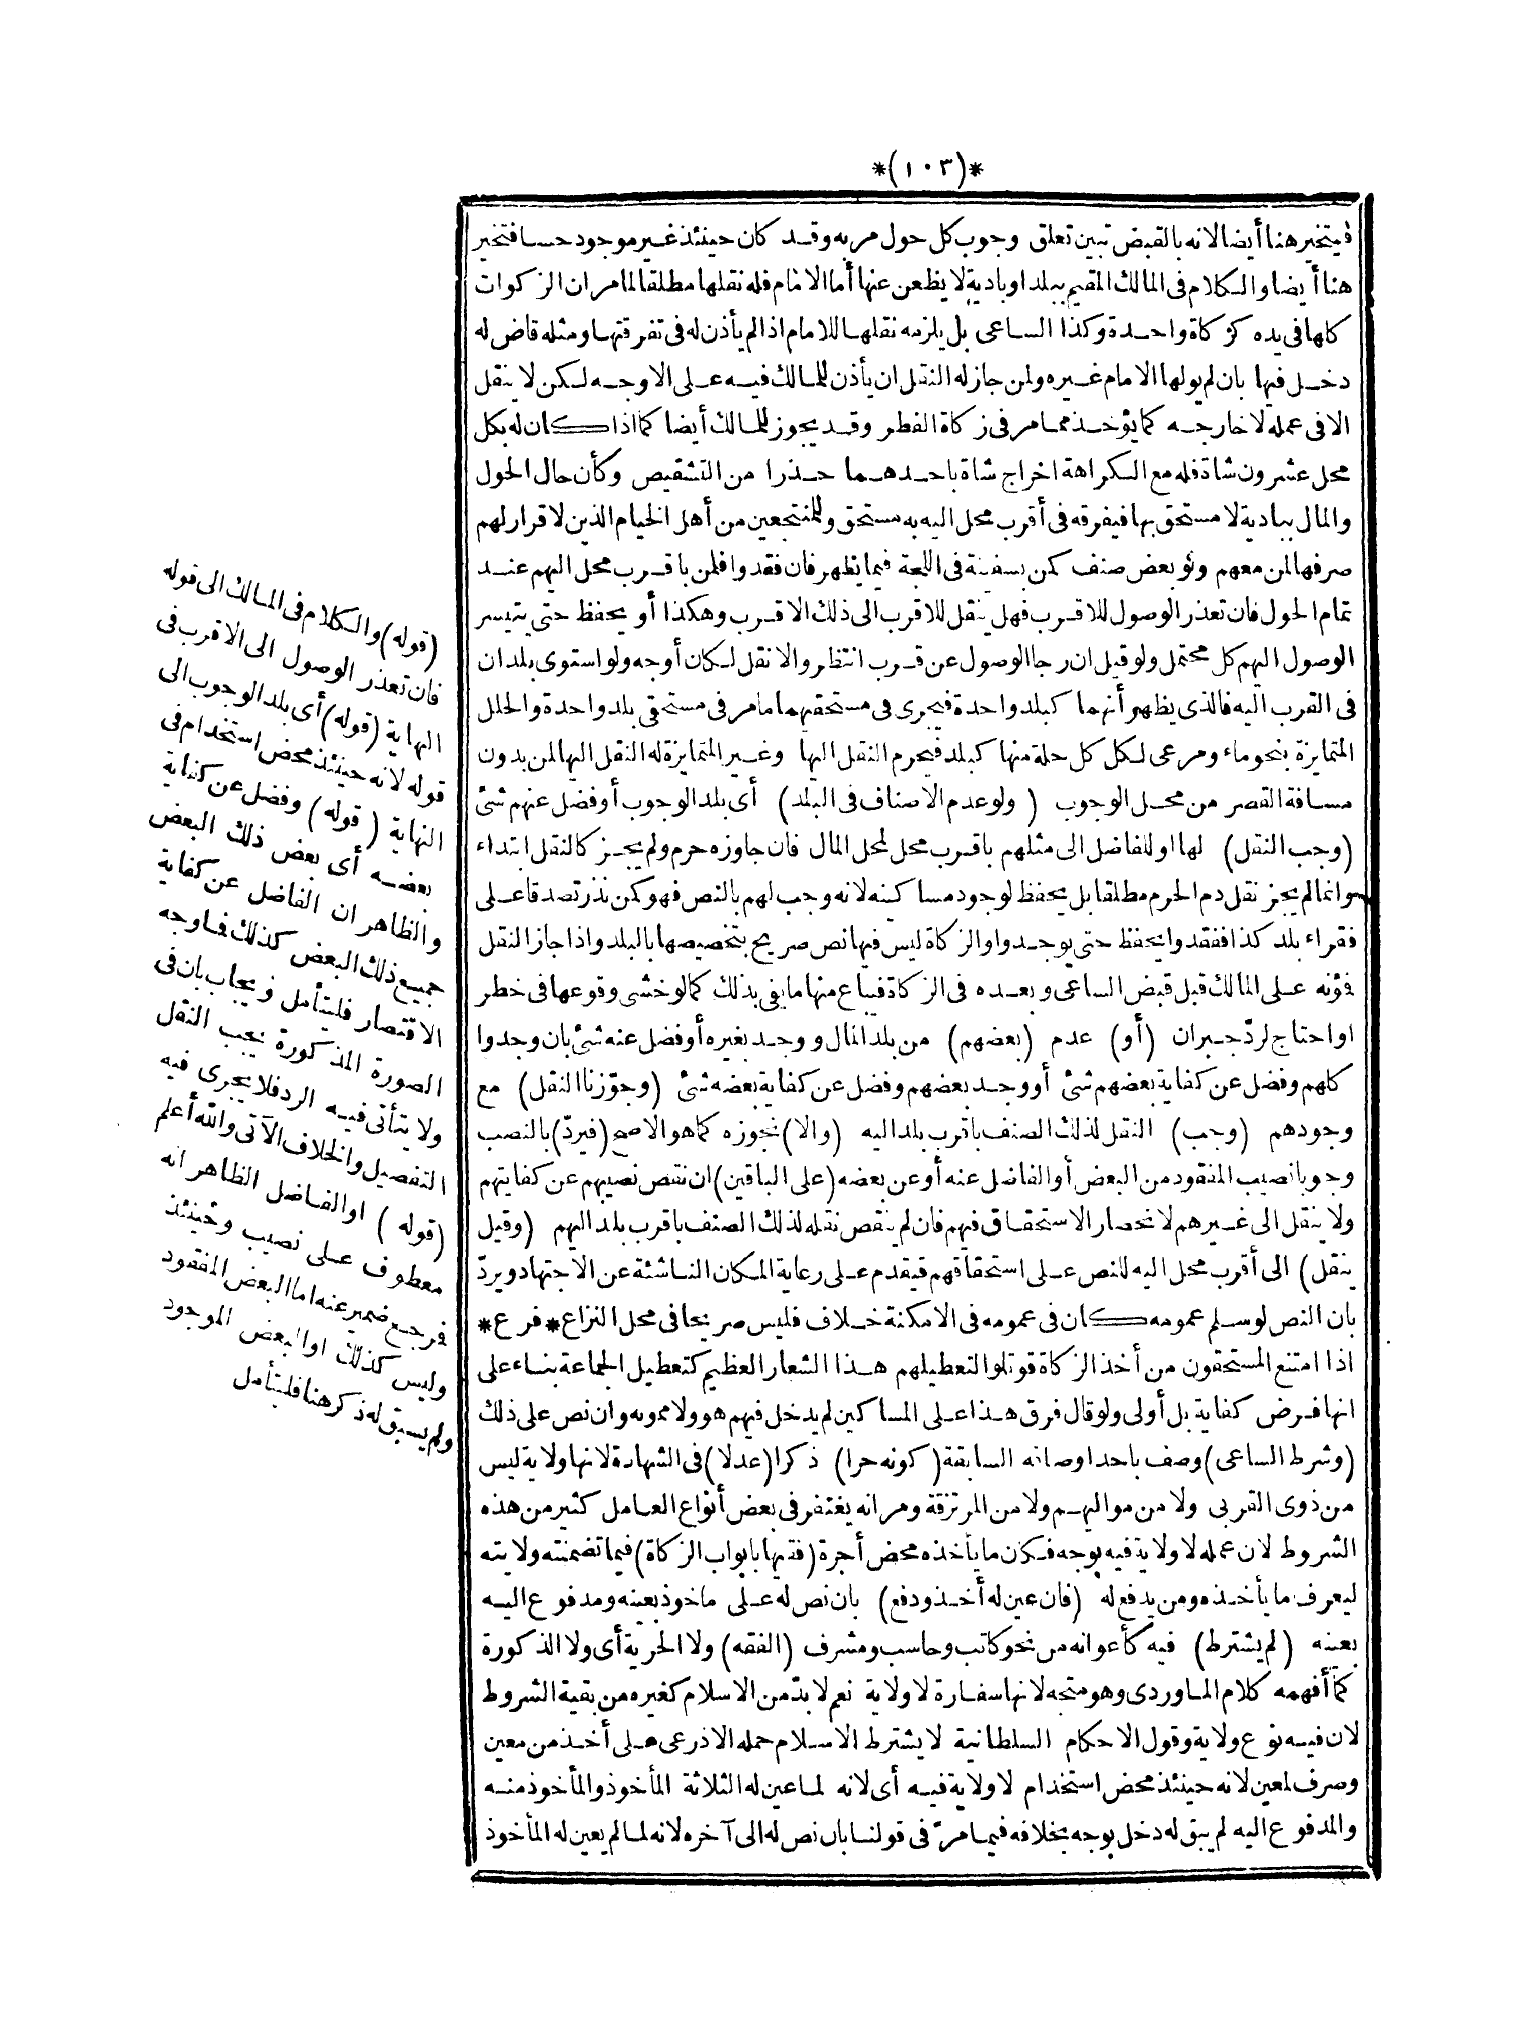 *(١٠٣)*
فيتخير هنا أيضا لانه بالقبض تبين تعلق وجوب كل حول مر به وقد كان حينئذ غير موجود حسا فتخير
هنا أيضا والكلام فى المالك المقيم ببلد او بادية لا يظعن عنها أما الامام فله نقلها مطلقا لما مر ان الزكوات
كلها فى يده كزكاة واحدة وكذا الساعى بل يلزمه نقلها للامام اذا لم يأذن له فى تفرقتها ومثله قاض له
دخل فيها بان لم يولها الامام غيره ولمن جاز له النقل ان يأذن للمالك فيه على الاوجه لكن لا ينقل
الا فى عمله لا خارجه كما يؤخذ مما مر فى زكاة الفطر وقد يجوز للمالك أيضا كما اذا كان له بكل
محل عشرون شاة فله مع الكراهة اخراج شاة باحدهما حذرا من التشقيص وكأن حال الحول
والمال ببادية لا مستحق بها فيفرقه فى أقرب محل اليه به مستحق وللمنتجعين من أهل الخيام الذين لا قرار لهم
صرفها لمن معهم ولو بعض صنف كمن بسفينة فى اللجة فيما يظهر فان فقدوا فلمن باقرب محل اليهم عند
تمام الحول فان تعذر الوصول للاقرب فهل ينقل للاقرب الى ذلك الاقرب وهكذا أو يحفظ حتى يتيسر
الوصول اليهم كل محتمل ولو قيل ان رجا الوصول عن قرب انتظر والا نقل لكان أوجه ولو استوى بلدان
فى القرب اليه فالذى يظهر أنهما كبلد واحدة فيجرى فى مستحقيهما ما مر فى مستحقى بلد واحدة والحلل
المتمايزة بنحو ماء ومرعى لكل كل حلة منها كبلد فيحرم النقل اليها وغير المتمايزة له النقل اليها لمن بدون
مسافة القصر من محل الوجوب (ولو عدم الاصناف فى البلد) أى بلد الوجوب أو فضل عنهم شئ
(وجب النقل) لها او للفاضل الى مثلهم باقرب محل لمحل المال فان جاوزه حرم ولم يجز كالنقل ابتداء
وانما لم يجز نقل دم الحرم مطلقا بل يحفظ لوجود مساكينه لانه وجب لهم بالنص فهو كمن نذر تصدقا على
فقراء بلد كذا ففقدوا يحفظ حتى يوجدوا والزكاة ليس فيها نص صريح بتخصيصها بالبلد واذا جاز النقل
فمؤنه على المالك قبل قبض الساعى وبعده فى الزكاة فيباع منها ما يفى بذلك كما لو خشى وقوعها فى خطر
او احتاج لرد جبران (أو) عدم (بعضهم) من بلد المال ووجد بغيره أو فضل عنه شئ بان وجدوا
كلهم وفضل عن كفاية بعضهم شئ أو وجد بعضهم وفضل عن كفاية بعضه شئ (وجوّزنا النقل) مع
وجودهم (وجب) النقل لذلك الصنف باقرب بلد اليه (والا) نجوزه كما هو الاصح (فيردّ) بالنصب
وجوبا نصيب المفقود من البعض أو الفاضل عنه أو عن بعضه (على الباقين) ان نقص نصيبهم عن كفايتهم
ولا ينقل الى غيرهم لانحصار الاستحقاق فيهم فان لم ينقص نقله لذلك الصنف باقرب بلد اليهم (وقيل
ينقل) الى أقرب محل اليه للنص على استحقاقهم فيقدم على رعاية المكان الناشئة عن الاجتهاد ويردّ
بان النص لو سلم عمومه كان فى عمومه فى الامكنة خلاف فليس صريحا فى محل النزاع *فرع*
اذا امتنع المستحقون من أخذ الزكاة قوتلوا لتعطيلهم هذا الشعار العظيم كتعطيل الجماعة بناء على
انها فرض كفاية بل أولى ولو قال فرق هذا على المساكين لم يدخل فيهم هو ولا ممونه وان نص على ذلك
(وشرط الساعى) وصف باحد اوصافه السابقة (كونه حرا) ذكرا (عدلا) فى الشهادة لانها ولاية ليس
من ذوى القربى ولا من مواليهم ولا من المرتزقة ومر انه يغتفر فى بعض أنواع العامل كثير من هذه
الشروط لان عمله لا ولاية فيه بوجه فكان ما يأخذه محض أجرة (فقيها بابواب الزكاة) فيما تضمنته ولايته
ليعرف ما يأخذه ومن يدفع له (فان عين له أخذ ودفع) بان نص له على ماخوذ بعينه ومدفوع اليه
بعينه (لم يشترط) فيه كأعوانه من نحو كاتب وحاسب ومشرف (الفقه) ولا الحرية أى ولا الذكورة
كما أفهمه كلام الماوردى وهو متجه لانها سفارة لا ولاية نعم لا بدّ من الاسلام كغيره من بقية الشروط
لان فيه نوع ولاية وقول الاحكام السلطانية لا يشترط الاسلام حمله الاذرعى على أخذ من معين
وصرف لمعين لانه حينئذ محض استخدام لا ولاية فيه أى لانه لما عين له الثلاثة المأخوذ والمأخوذ منه
والمدفوع اليه لم يبق له دخل بوجه بخلافه فيما مرّ فى قولنا بان نص له الى آخره لانه لما لم يعين له المأخوذ
(قوله) والكلام فى المالك الى قوله
فان تعذر الوصول الى الاقرب فى
النهاية (قوله) أى بلد الوجوب الى
قوله لانه حينئذ محض استخدام فى
النهاية (قوله) وفضل عن كفاية
بعضه أى بعض ذلك البعض
والظاهر ان الفاضل عن كفاية
جميع ذلك البعض كذلك فما وجه
الاقتصار فليتأمل ويجاب بان فى
الصورة المذكورة يجب النقل
ولا يتأتى فيه الرد فلا يجرى فيه
التفصيل والخلاف الآتى والله أعلم
(قوله) او الفاضل الظاهر انه
معطوف على نصيب وحينئذ
فرجع ضمير عنه اما البعض المفقود
وليس كذلك او البعض الموجود
ولم يسبق له ذكر هنا فليتأمل